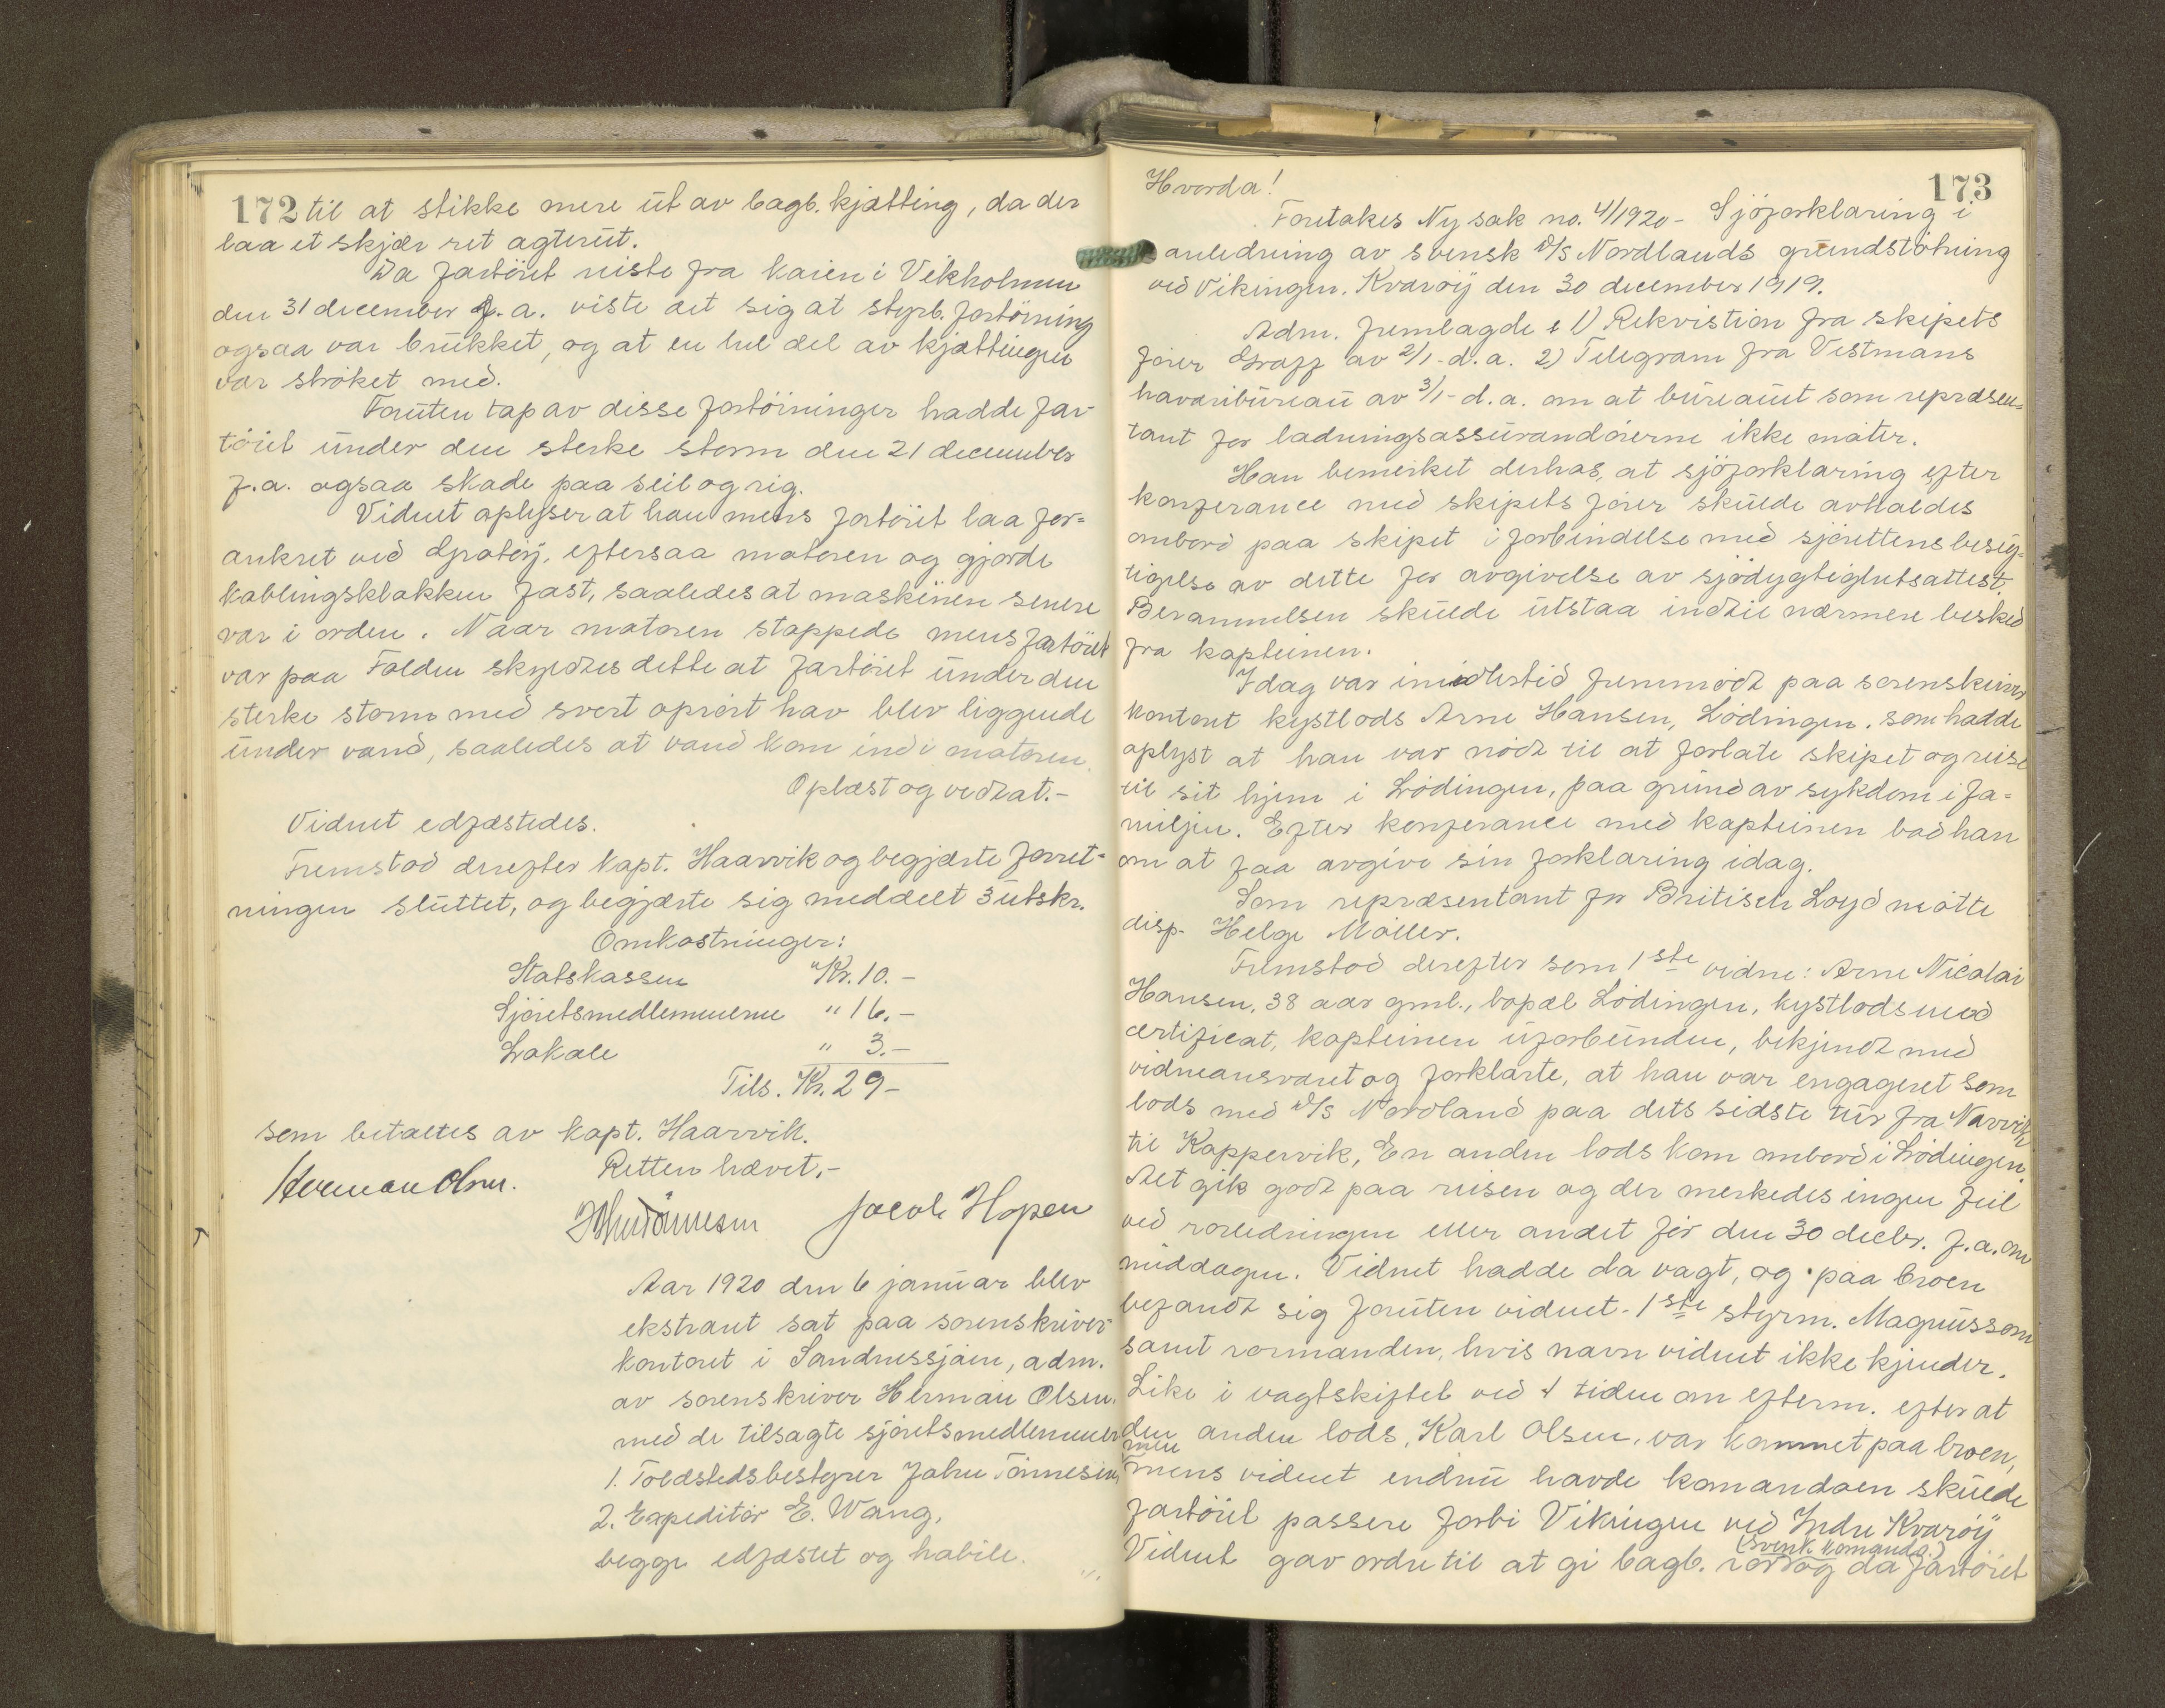 172 til at stikke mere ut av bagb. kjætting, da der
laa et skjær ret agterut.
Da fartöiet reiste fra kaien i Vikholmen
den 31 december f.a. viste det sig at styrb. fortöining
ogsaa var brukket, og at en hel del av kjættingen
var ströket med.
Foruten tap av disse fortöininger hadde far-
töiet under den sterke storm den 21 december
f.a. ogsaa skade paa seil og rig.
Vidnet oplyser at han mens fartöiet laa for-
ankret ved Gratöy, eftersaa motoren og gjorde
koblingsklokken fast, saaledes at maskinen senere
var i orden. Naar motoren stoppede mens fartöiet
var paa Folden skyldtes dette at fartöiet under den
sterke storm med svert oprört hav blev liggende
under vand, saaledes at vand kom ind i motoren.
Oplæst og vedtat.-
Vidnet edfæstedes.
Fremstod derefter kapt. Haarvik og begjærte forret-
ningen sluttet, og begjærte sig meddelt 3 utskr.
Omkostninger:
Statskassen "Kr. 10.-
Sjöretsmedlemmerne " 16.-
Lokale " 3.-
Tils. Kr. 29-
som betaltes av kapt. Haarvik.
Retten hævet.-
Herman Olsen. John Tönnesen Jacob Hopen
Aar 1920 den 6 januar blev
ekstraret sat paa sorenskriver-
kontoret i Sandnessjöen, adm.
av sorenskriver Herman Olsen.
med de tilsagte sjöretsmedlemmer
1. Toldstedsbestyrer John Tönnesen,
2. Expeditör E. Wang,
begge edfæstet og habile.
173
Hvorda!
Foretakes Ny sak no. 4/1920 - Sjöforklaring i
anledning av svensk D/S Nordlands grundstötning
ved Vikingen, Kvaröy den 30 december 1919.
Adm. fremlagde 1) Rekvistion fra skipets
förer Graff av 2/1- d.a. 2) Telegram fra Vestmans
havaribureau av 3/1- d.a. om at bureauet som repræsen=
tant for ladningsassurandörerne ikke möter.
Han bemerket derhos, at sjöforklaring efter
konferance med skipets förer skulde avholdes
ombord paa skipet i forbindelse med sjörettens besig=
tigelse av dette for avgivelse av sjödygtighetsattest.
Berammelsen skulde utstaa indtil nærmere besked
fra kapteinen.
Idag var imidlertid fremmödt paa sorenskriver
kontoret kystlods Arne Hansen, Lödingen, som hadde
oplyst at han var nödt til at forlate skipet og reise
til sit hjem i Lödingen, paa grund av sykdom i fa=
miljen. Efter konferance med kapteinen bad han
om at faa avgive sin forklaring idag.
Som repræsentant for Britisch Loyd mötte
disp. Helge Möller.
Fremstod derefter som 1ste vidne: Arne Nicolai
Hansen, 38 aar gml., bopæl Lödingen, kystlods med
certificat, kapteinen uforbunden, bekjendt med
vidneansvaret og forklarte, at han var engageret som
lods med D/S Nordland paa dets sidste tur fra Narvik
til Koppervik, En anden lods kom ombord i Lödingen.
Alt gik godt paa reisen og der merkedes ingen feil
ved rorledningen eller andet för den 30 decbr. f.a. om
middagen. Vidnet hadde da vagt, og paa broen
befandt sig foruten vidnet - 1ste styrm. Magnusson
samt rormanden, hvis navn vidnet ikke kjender.
Like i vagtskiftet ved 4 tiden om efterm. efter at
den anden lods, Karl Olsen, var kommet paa broen,
men
mens vidnet endnu havde komandoen skulde
fartöiet passere forbi Vikingen ved Indre Kvaröy
(svensk komando.)
Vidnet gav ordre til at gi bagb. ror og da fartöiet